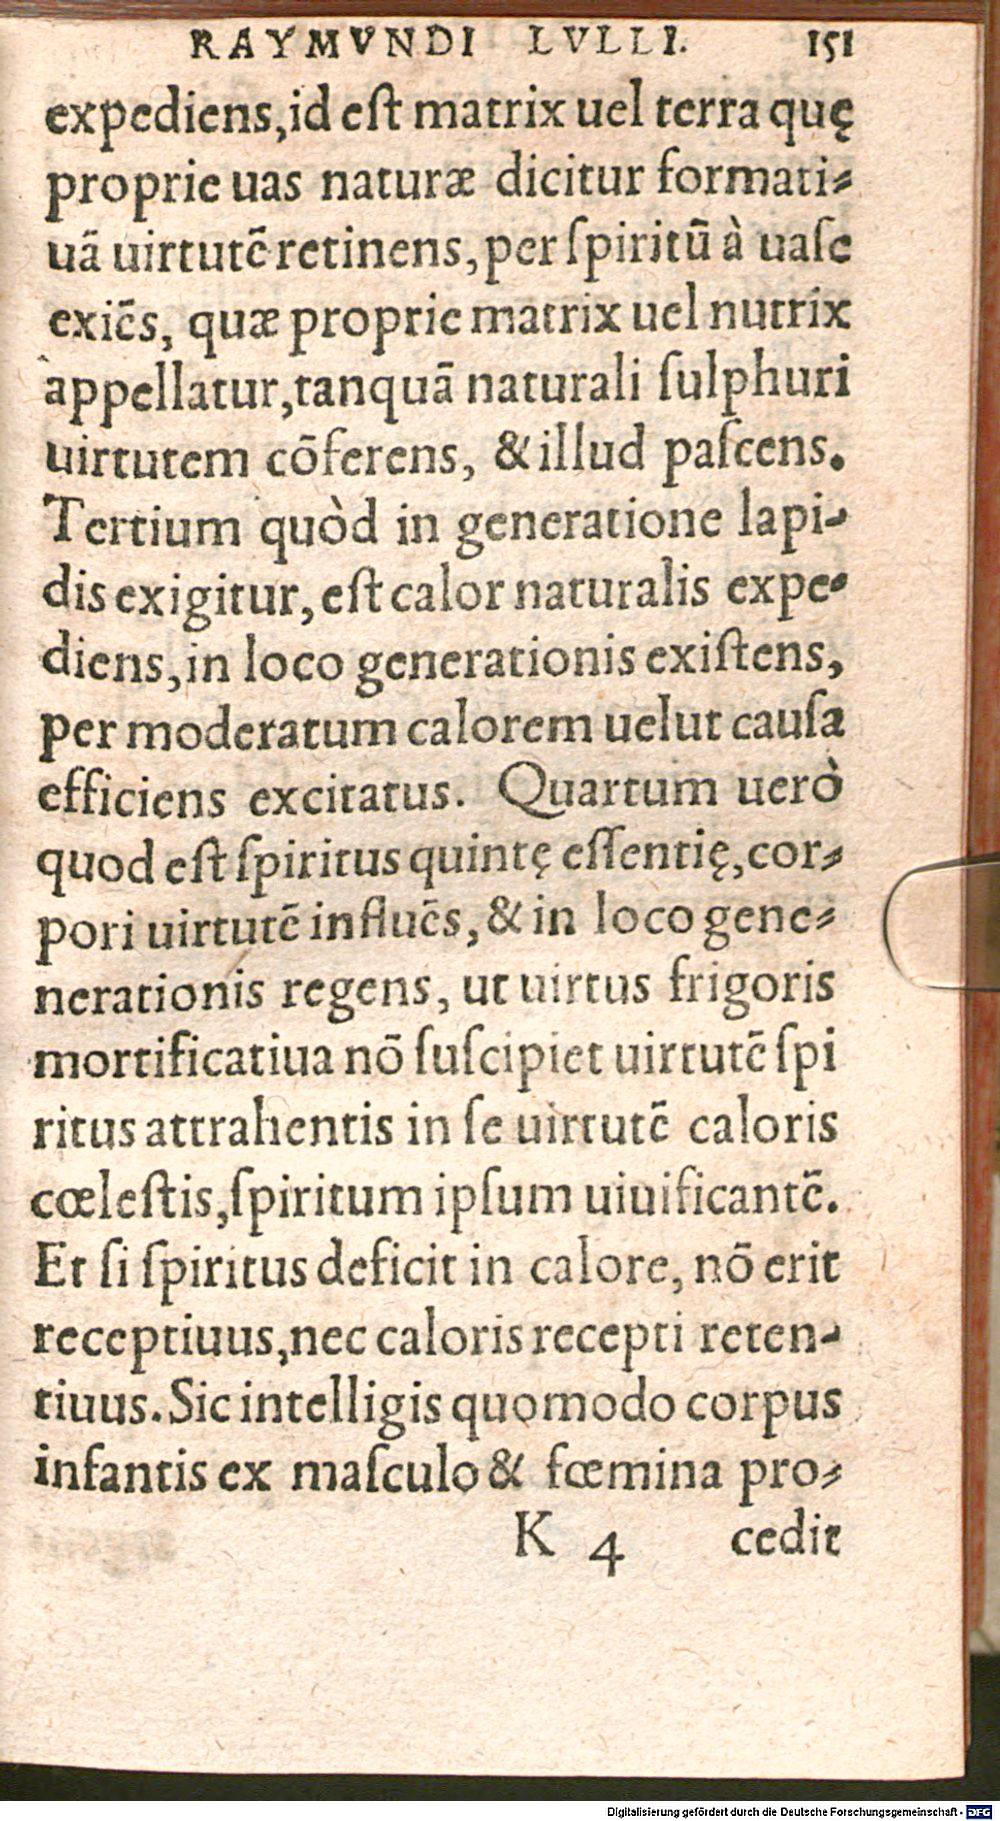 RAYMVNDI LVLLI. 151
expediens, id est matrix uel terra quę
proprie uas naturæ dicitur formati⸗
uã uirtutẽ retinens, per spiritũ à uase
exiẽs, quæ proprie matrix uel nutrix
appellatur, tanquã naturali sulphuri
uirtutem cõferens, & illud pascens.
Tertium quòd in generatione lapi⸗
dis exigitur, est calor naturalis expe⸗
diens, in loco generationis existens,
per moderatum calorem uelut causa
efficiens excitatus. Quartum uerò
quod est spiritus quintę essentię, cor⸗
pori uirtutẽ influẽs, & in loco gene⸗
nerationis regens, ut uirtus frigoris
mortificatiua nõ suscipiet uirtutẽ spi
ritus attrahentis in se uirtutẽ caloris
cœlestis, spiritum ipsum uiuificantẽ.
Et si spiritus deficit in calore, nõ erit
receptiuus, nec caloris recepti reten⸗
tiuus. Sic intelligis quomodo corpus
infantis ex masculo & fœmina pro⸗
K 4 cedit
Digitalisierung gefördert durch die Deutsche Forschungsgemeinschaft - DFG